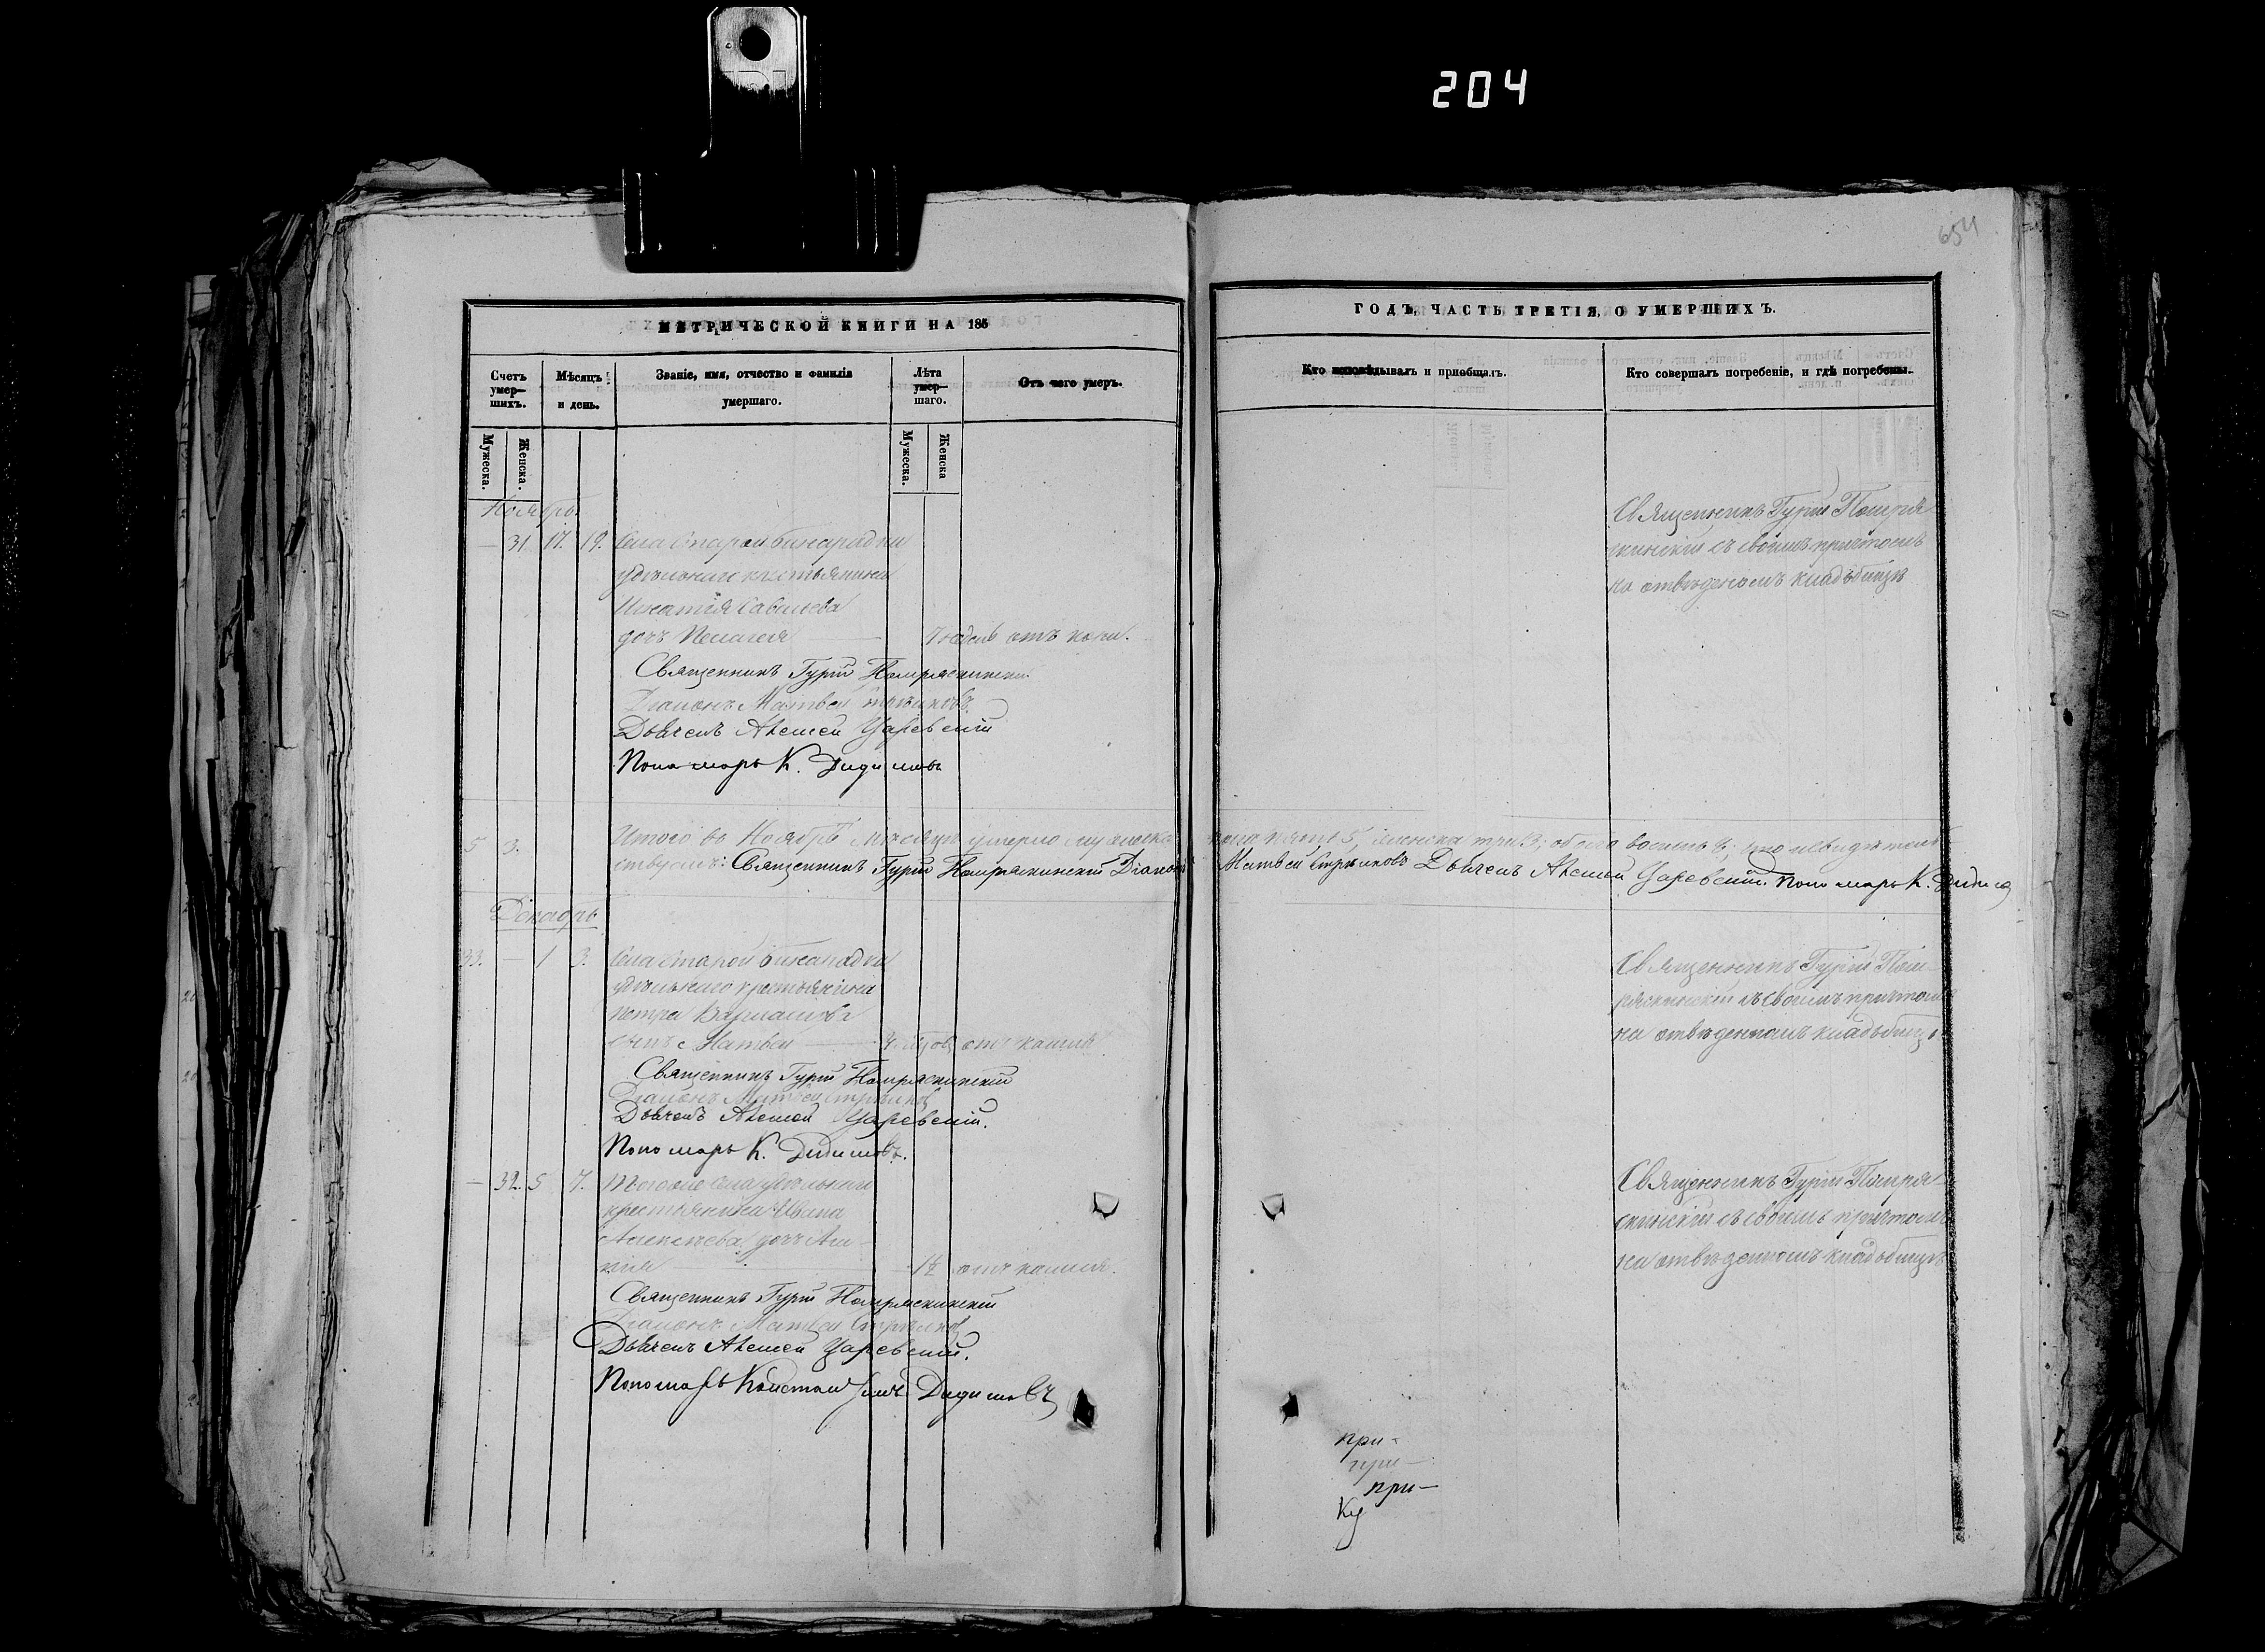 204
654
МЕТРИЧЕСКОЙ КНИГИ НА 185
ГОДЪ, ЧАСТЬ ТРЕТІЯ, О УМЕРШИХЪ.
Счетъ умер— шихъ.
Мѣсяцъ и день.
Званіе, имя, отчество и фамилія умершаго.
Лѣта умер— шаго.
Отъ чего умеръ.
Кто исповѣдывалъ и пріобщалъ.
Кто совершалъ погребеніе, и гдѣ погребены.
Мужеска.
Женска.
Мужеска.
Женска
Ноябрь.
— 31 17. 19. Села Старой Бинарадки
удѣльнаго крестьянина
Игнатія Савельева
дочь Пелагея — отъ кори.
Священникъ Гурій Помряскинскій
на отведеномъ кладъбищѣ
Священникъ Гурій Помряскинскій
Діаконъ Матвей Стрѣлковъ
Дьячекъ Алексей Царевскій
Пономарь К. Дидимовъ
5 3. Итого въ Ноябрѣ месяцѣ умерло мужеска пола пять 5, женска три 3, обоего восемь 8, что и свидетель
ствуемъ: Священникъ Гурій Помряскинскій Діаконъ Матвей Стрѣлковъ Дьячекъ Алексей Царевскій. Пономарь К. Дидимо
Декабрь
33. — 1 3. Села Старой Бинарадки
удѣльнаго крестьянина
Петра
сынъ Матвей — отъ кашля.
Священникъ Гурій Пом
ряскинскій съ своимъ причтомъ
на отведенномъ кладъбищѣ
Священникъ Гурій Помряскинскій
Діаконъ Матвей Стрѣлковъ
Дьячекъ Алексей Царевскій.
Пономарь К. Дидимовъ.
— 32. 5 7. Тогоже села удѣльнаго
крестьянина Ивана
Алексѣева дочь
— 1½ отъ кашля.
Священникъ Гурій Помря
скинскій съ своимъ причтомъ
на отведенномъ кладъбищѣ
Священникъ Гурій Помряскинскій
Діаконъ Матвей Стрѣлковъ
Дьячекъ Алексей Царевскій.
Пономарь Константинъ Дидимовъ
при-
при-
при—
Ку